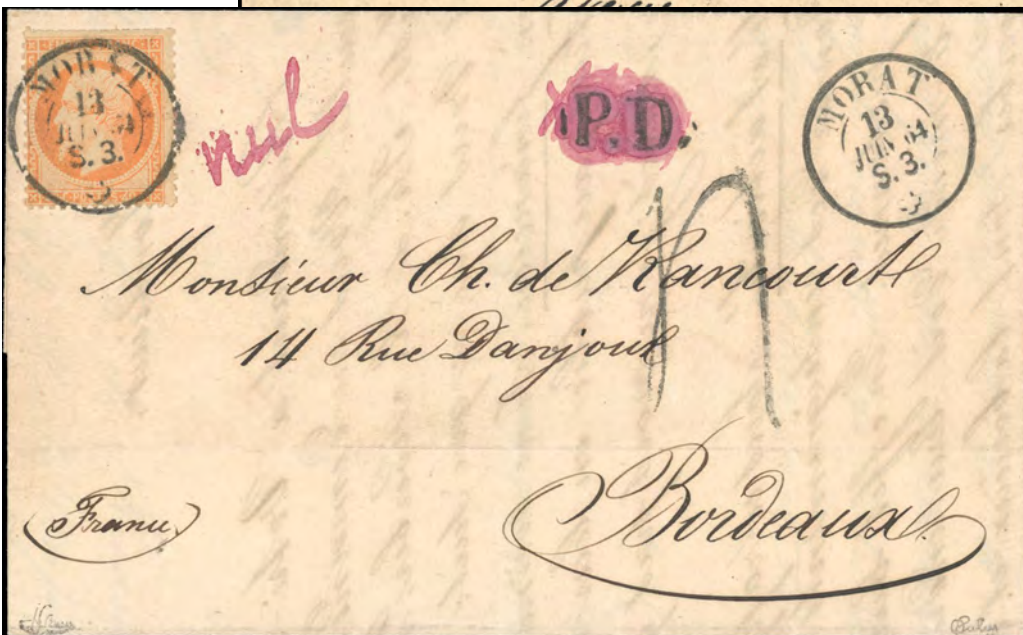 MORAT
13
JUIN 64
S. 3.
nul
P.D.
MORAT
13
JUIN 64
S. 3.
Monsieur Ch. de Rancourt
14 Rue Danjou
Bordeaux.
(France)